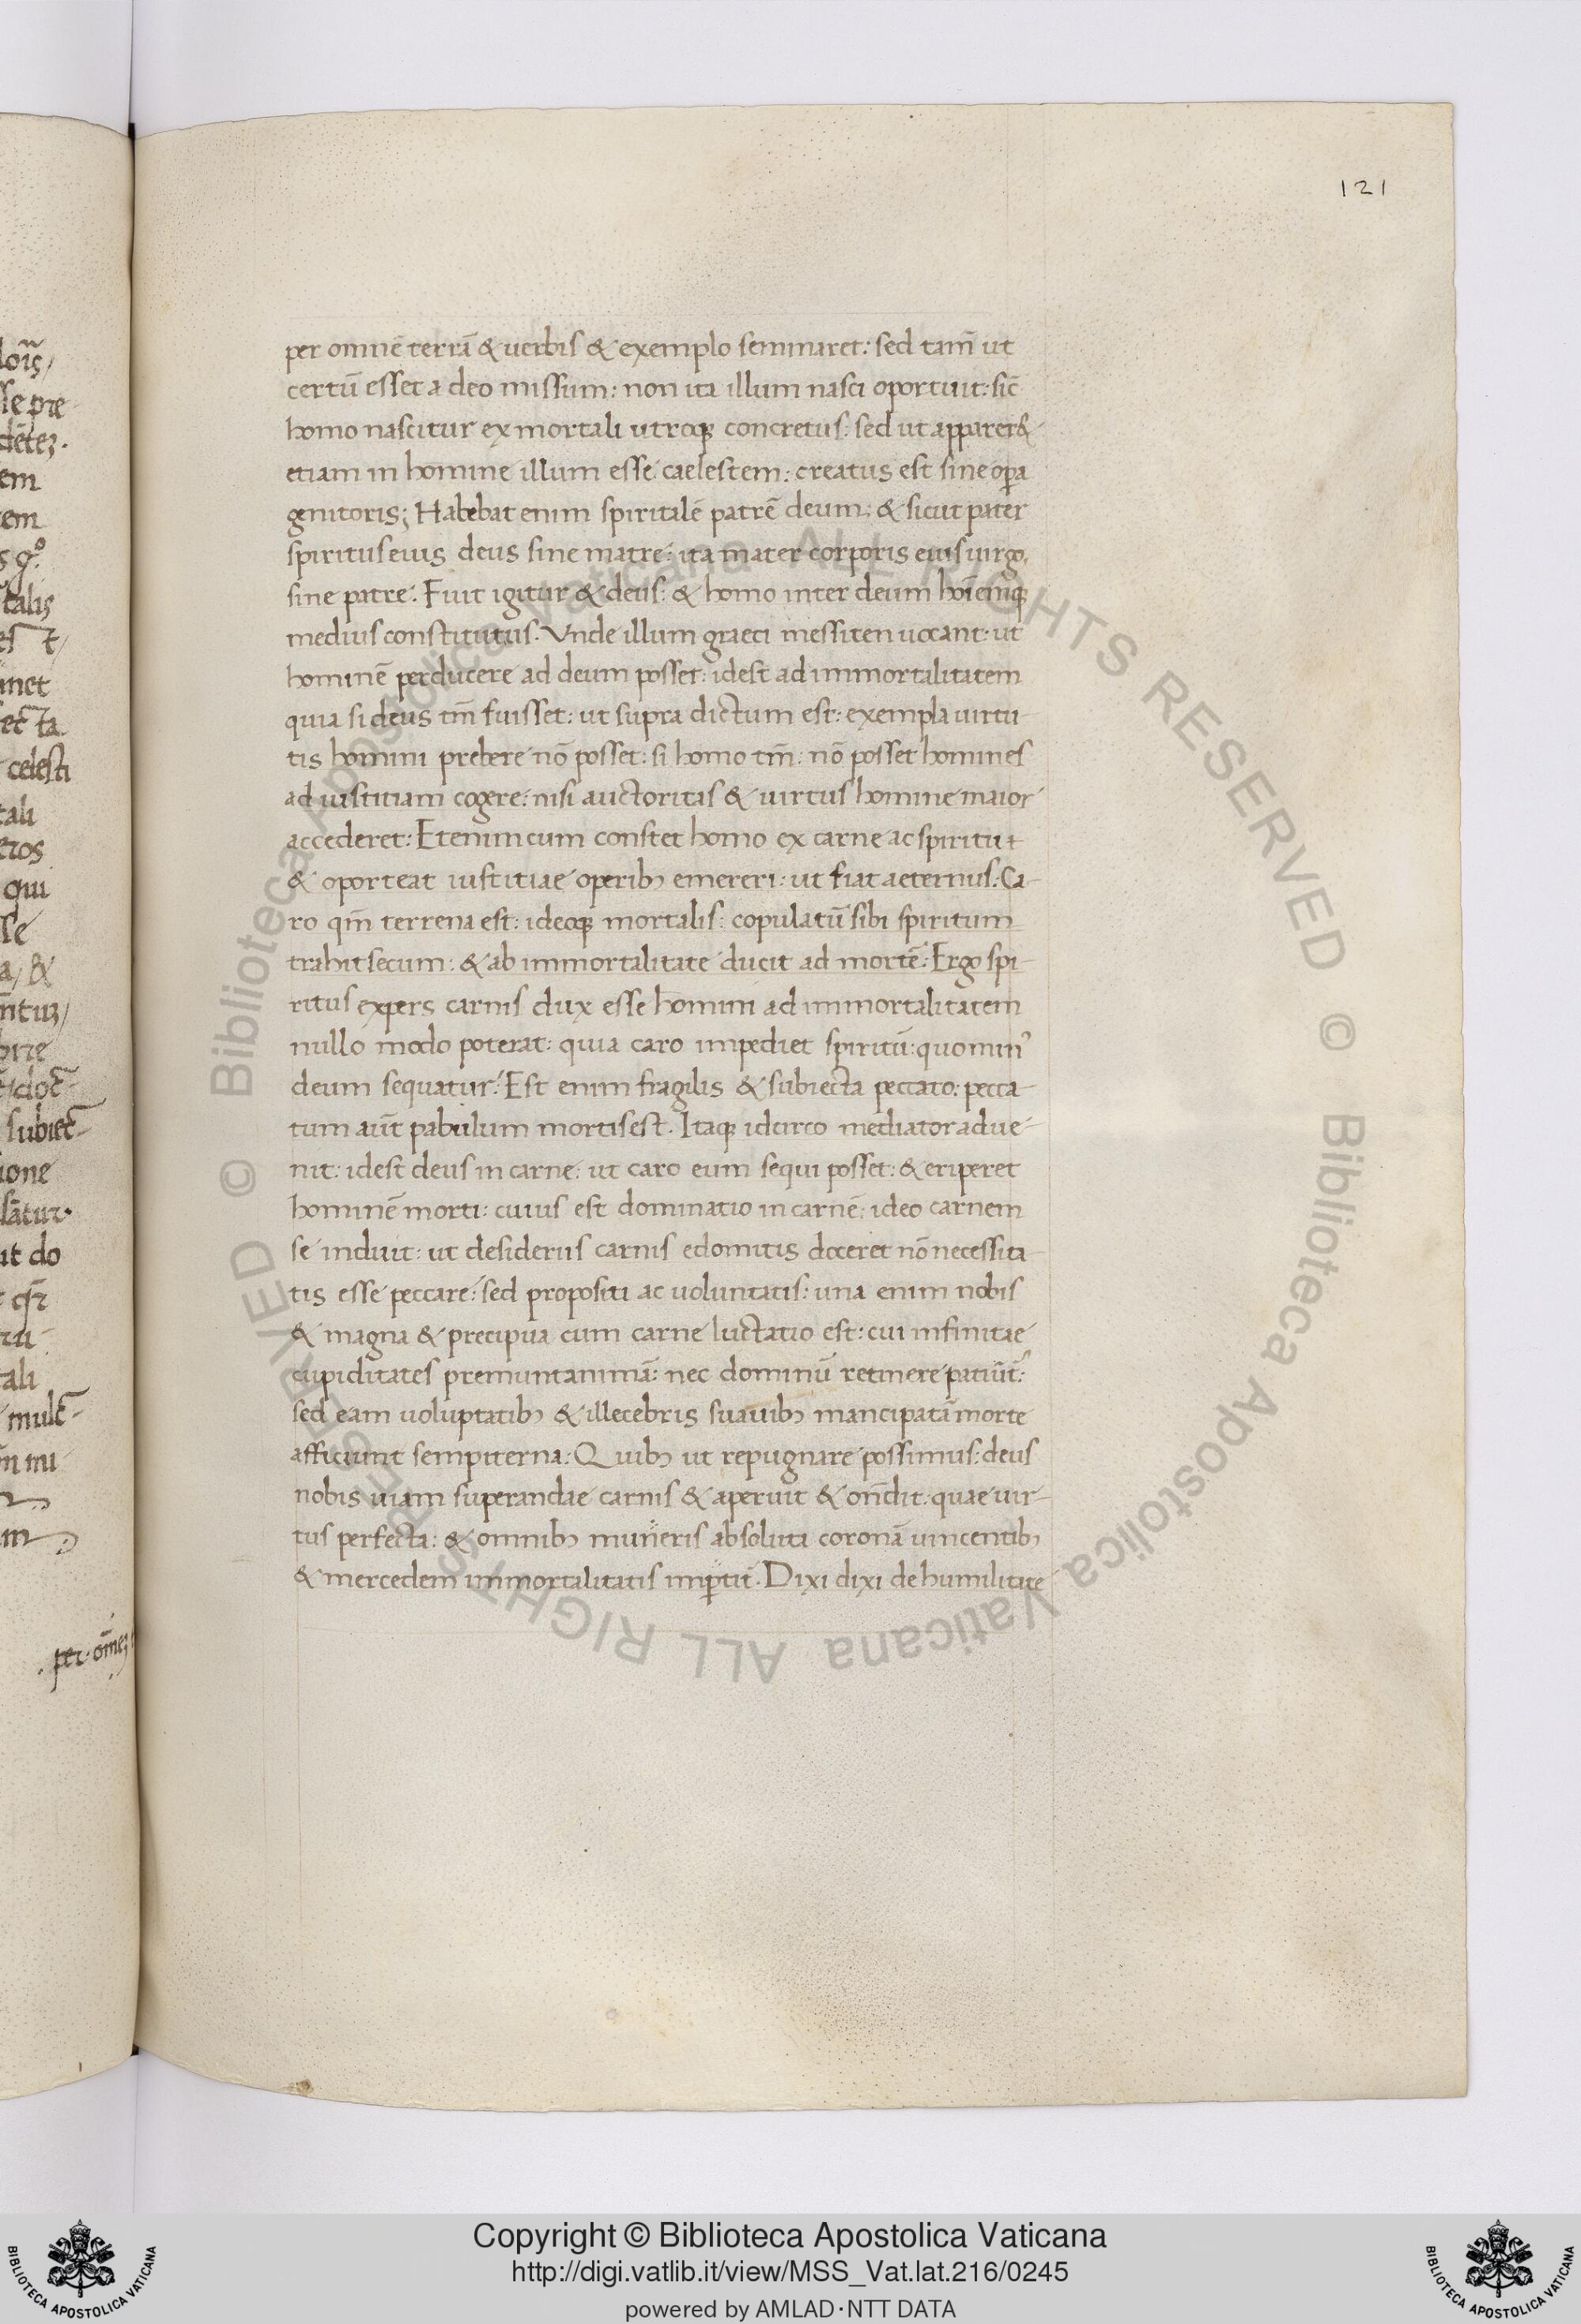 121
loīs/
sse pre
dētez.
em
tem
s g°.
talis
es t/
inet
ect ta
celesti
tali
eros
qui
sse
a/ &
ntur/
subiect
ione
lātur.
ut do
tali
mult
in mi
m
. per. om̄ez
per omnē terrā & uerbis & exemplo seminaret: sed tam̄ ut
certū esset a deo missum: non ita illum nasci oportuit: sic̄
homo nascitur ex mortali utroq; concretus: sed ut apparer&
etiam in homine illum esse caelestem: creatus est sine opa
genitoris; Habebat enim spiritalē patrē deum: & sicut pater
spiritus eius deus sine matre: ita mater corporis eius uirgo
sine patre. Fuit igitur & deus: & homo inter deum hoīemq;
medius constitutus. Vnde illum graeci messiten uocant: ut
hominē perducere ad deum posset: idest ad immortalitatem
quia si deus tm̄ fuisset: ut supra dictum est: exempla uirtu-
tis homini prebere nō posset: si homo tm̄: nō posset homines
ad iustitiam cogere: nisi auctoritas & uirtus homine maior
accederet: Etenim cum constet homo ex carne ac spiritu t
& oporteat iustitiae operib; emereri: ut fiat aeternus: Ca-
ro qm̄ terrena est: ideoq; mortalis: copulatū sibi spiritum
trahit secum: & ab immortalitate ducit ad mortē: Ergo spi-
ritus expers carnis dux esse homini ad immortalitatem
nullo modo poterat: quia caro impediet spiritū: quomin'
deum sequatur: Est enim fragilis & subiecta peccato: pecca-
tum aūt pabulum mortis est. Itaq; idcirco mediator adue-
nit: idest deus in carne: ut caro eum sequi posset: & eriperet
hominē morti: cuius est dominatio in carnē: ideo carnem
se induit: ut desideriis carnis edomitis doceret nō necessita-
tis esse peccare: sed propositi ac uoluntatis: una enim nobis
& magna & precipua cum carne luctatio est: cui infinitae
cupiditates premunt animā: nec dominū retinere patiūt':
sed eam uoluptatib; & illecebris suauib; mancipatā morte
afficiunt sempiterna: Quib; ut repugnare possimus: deus
nobis uiam superandae carnis & aperuit & on̄dit: quae uir-
tus perfecta: & omnib; muneris absoluta coronā uincentib;
& mercedem immortalitatis impertit. Dixi dixi de humilitate
© Biblioteca Apostolica Vaticana ALL RIGHTS RESERVED © Biblioteca Apostolica Vaticana ALL RIGHTS RESERVED
Copyright © Biblioteca Apostolica Vaticana
http://digi.vatlib.it/view/MSS_Vat.lat.216/0245
powered by AMLAD·NTT DATA
BIBLIOTECA APOSTOLICA VATICANA
BIBLIOTECA APOSTOLICA VATICANA